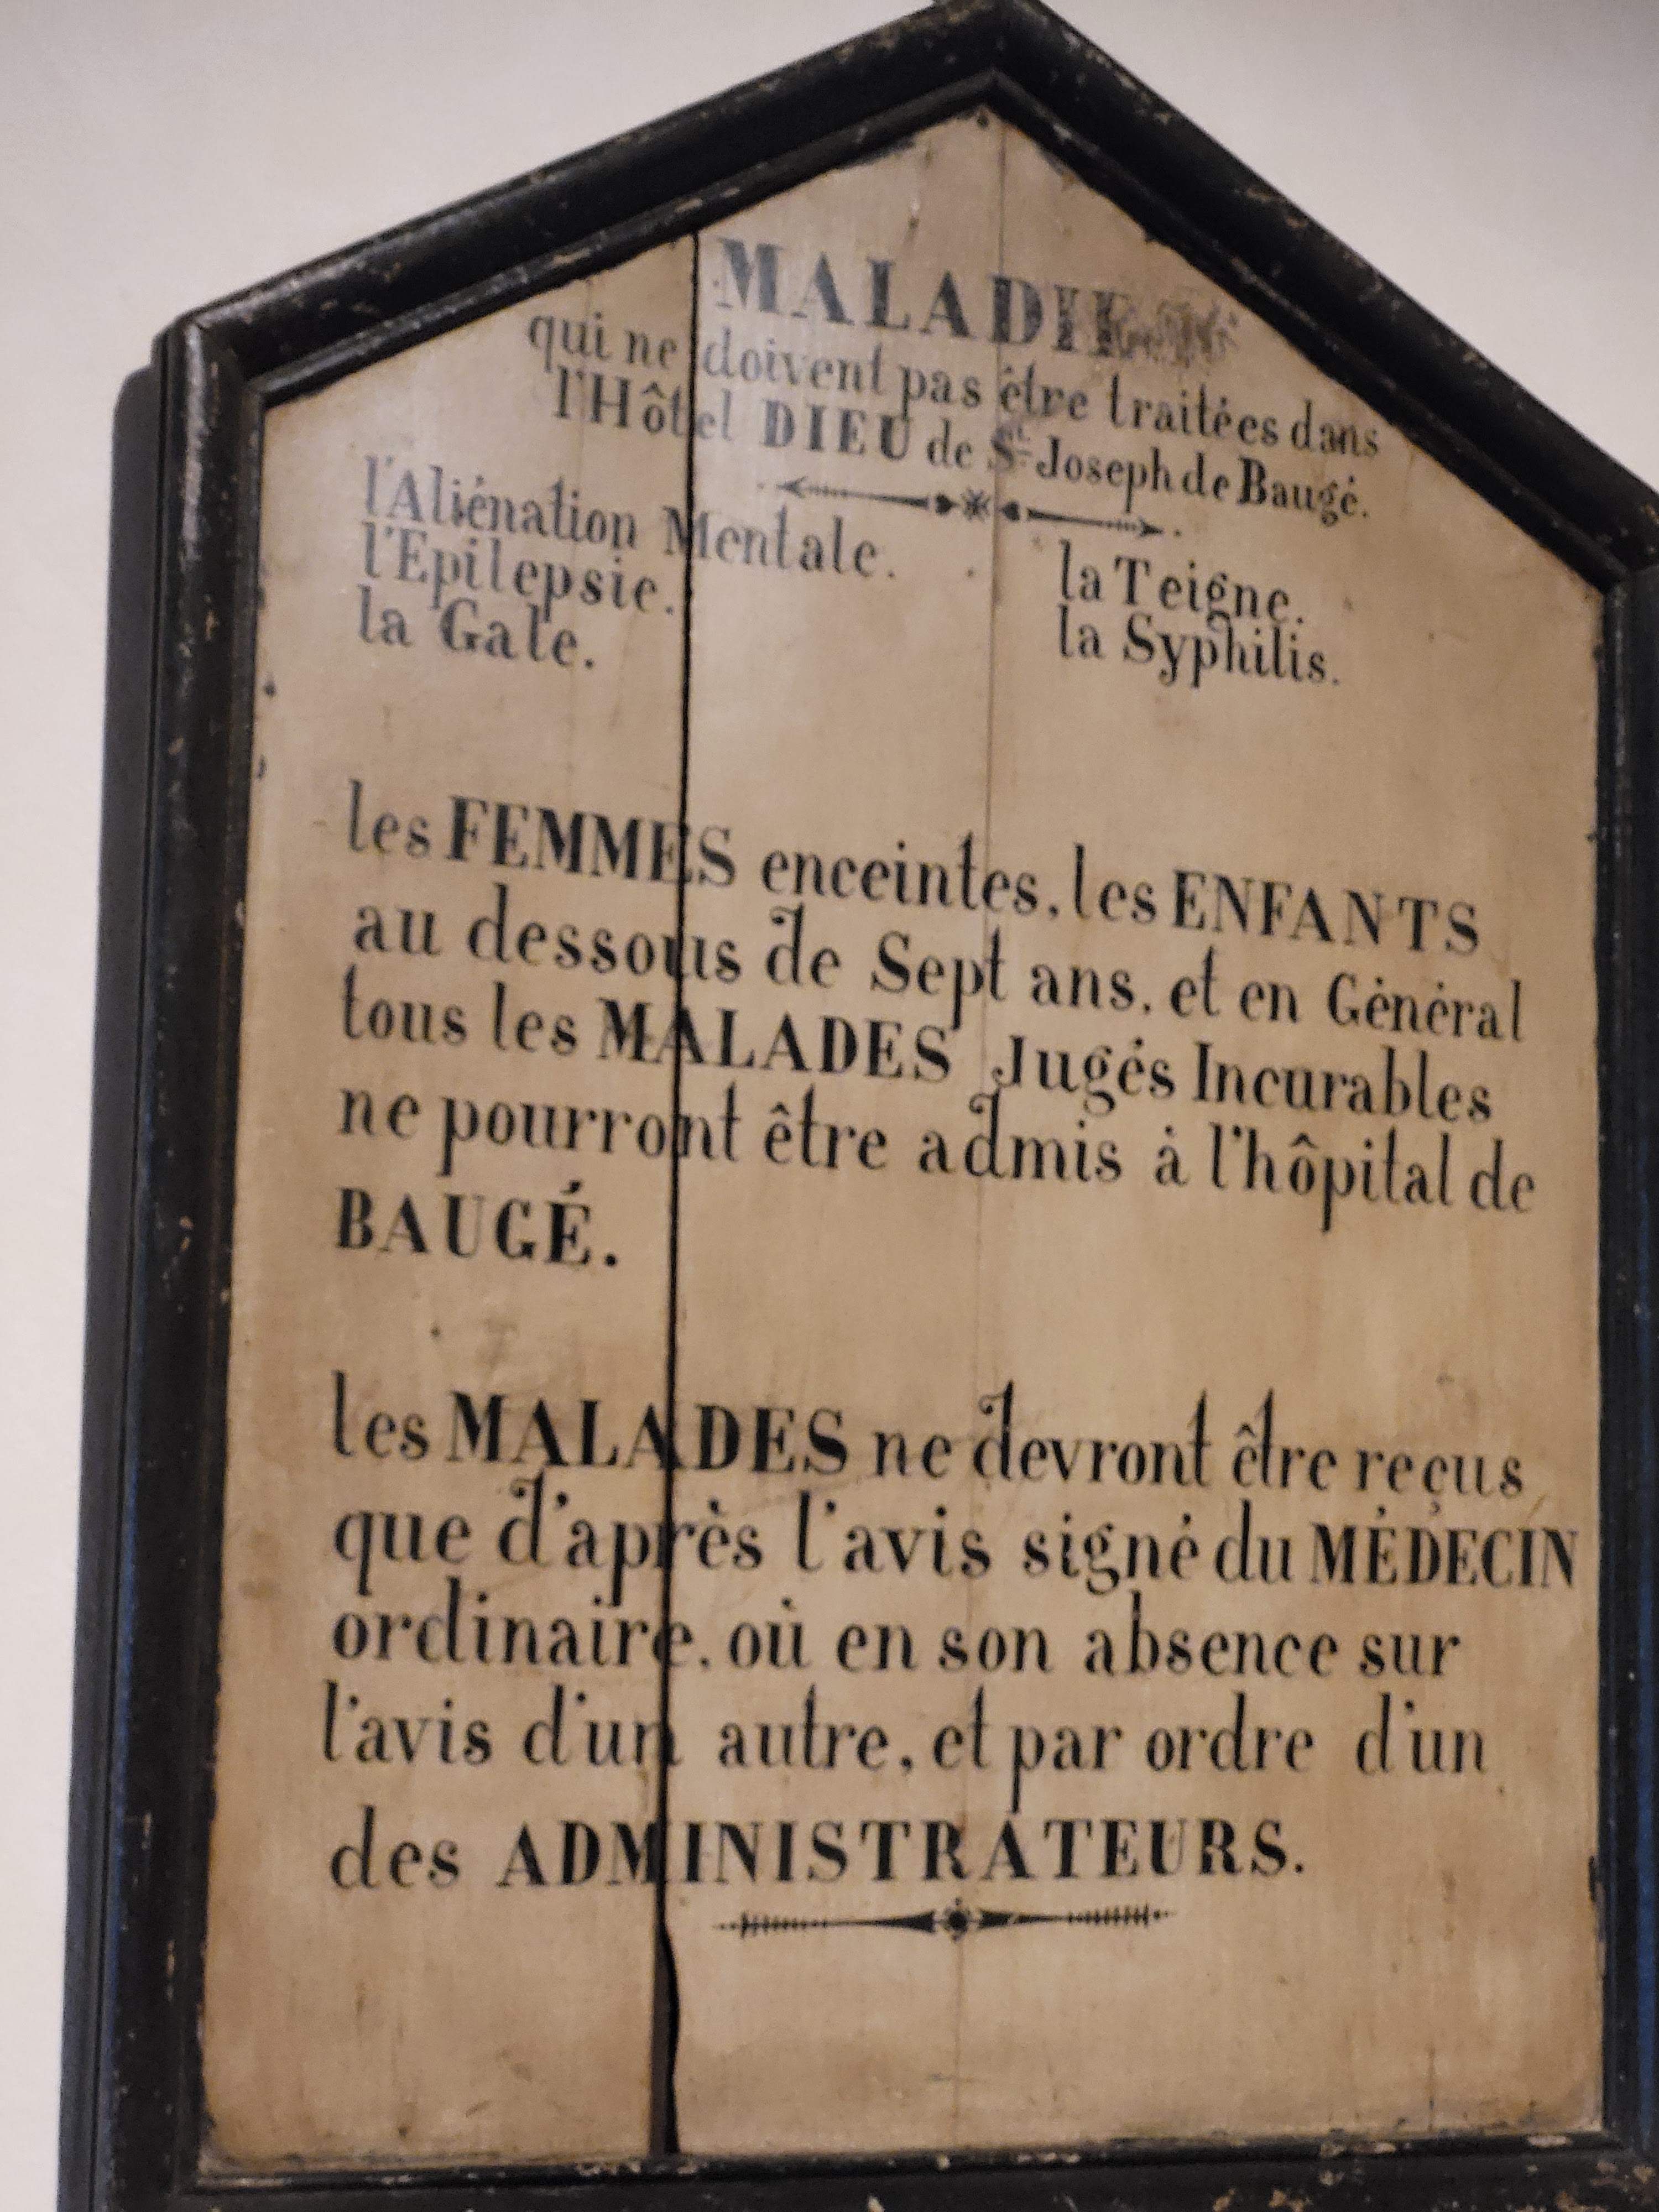 MALADIE
qui ne doivent pas être traitées dans
l'Hôtel DIEU de St. Joseph de Baugé.
l'Aliénation Mentale.
l'Epilepsie.
la Gale.
la Teigne.
la Syphilis.
les FEMMES enceintes, les ENFANTS
au dessous de Sept ans, et en Général
tous les MALADES Jugés Incurables
ne pourront être admis à l'hôpital de
BAUGÉ.
les MALADES ne devront être reçus
que d'après l'avis signé du MÉDECIN
ordinaire, où en son absence sur
l'avis d'un autre, et par ordre d'un
des ADMINISTRATEURS.